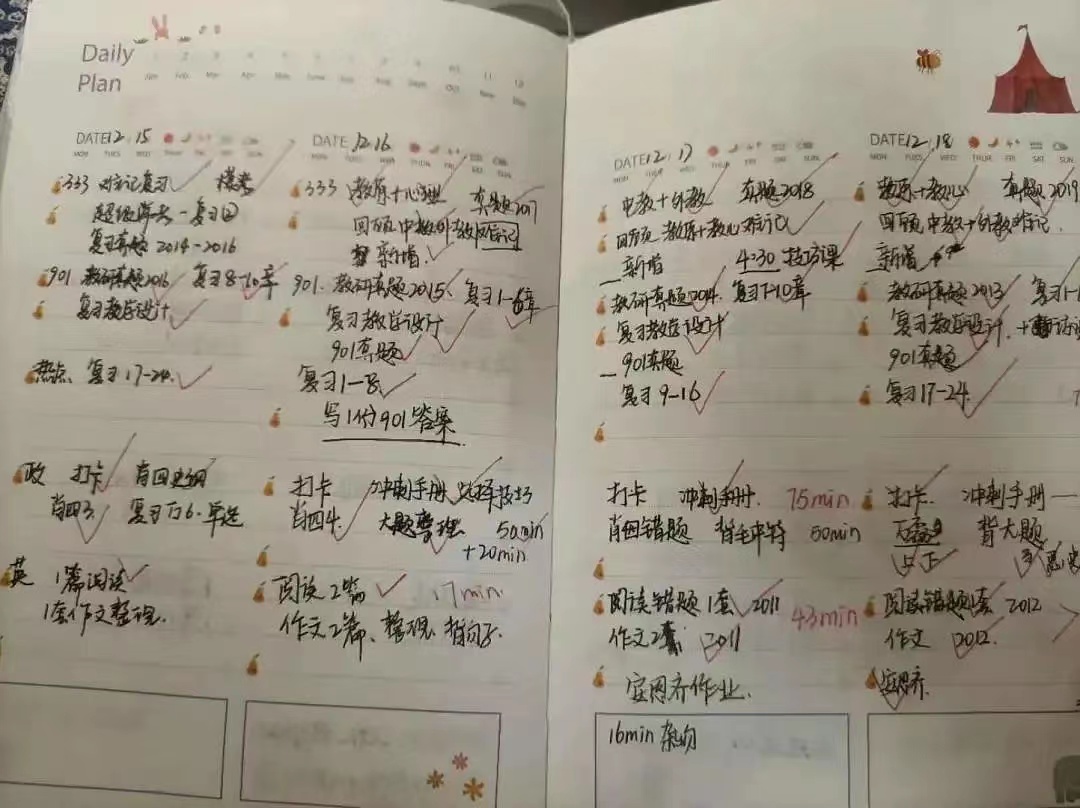 Daily
Plan
DATE 12.15
333 对标记复习 模考
一复习图
复习真题 2014-2016
901 教研真题2016 复习8-10章
复习教学设计
热点 复习17-24
政 打卡 肖四史纲
肖四3 复习 单选
英 1篇阅读
1套作文整理
DATE 12.16
333 教原+心理 真题2017
回顾中教外教标记
新增
901 教研真题2015 复习1-6章
复习教学设计
901真题
复习1-8
写1份901答案
打卡 冲刺手册 选择技巧
肖四4 大题整理 50min
+20min
阅读2篇 17min
作文2篇、整理、背句子
DATE 12.17
中教+外教 真题2018
回顾 教原+教心标记
新增 4:30 技巧课
教研真题2014 复习7-10章
复习教学设计
901真题
复习9-16
打卡 冲刺手册 75min
肖四错题 背毛中特 50min
阅读错题1套 2011 43min
作文2 2011
作业
16min 杂
DATE 12.18
教原+教心 真题2019
回顾中教+外教标记
新增
教研真题2013 复习1-
复习教学设计 +
901真题
复习17-24
打卡 冲刺手册
背大题
阅读错题1套 2012
作文 2012